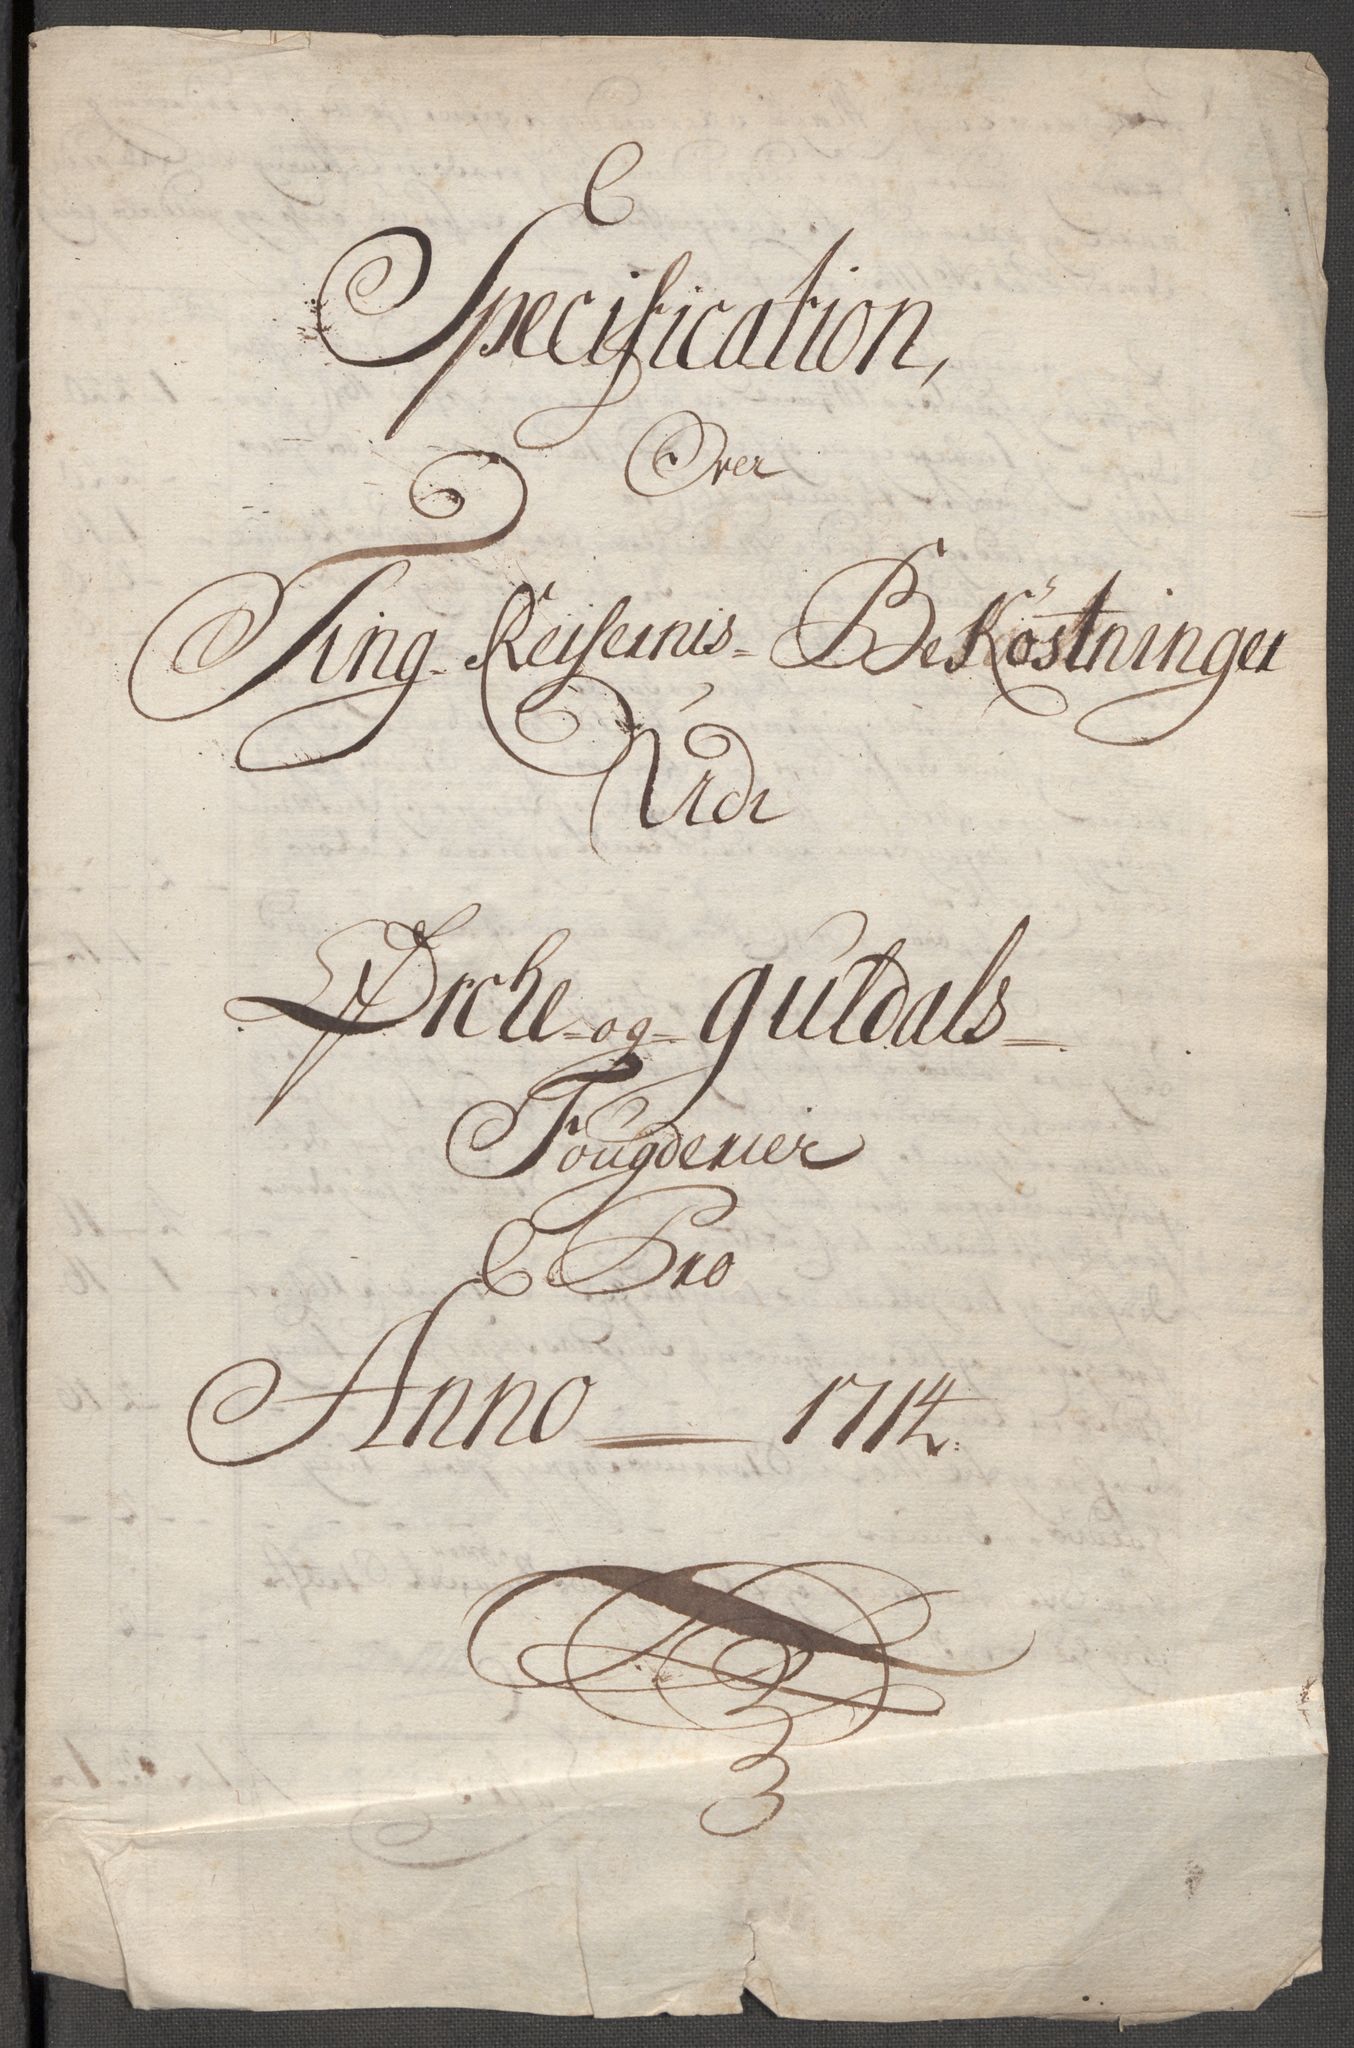 Specification,
Over
Ting-Reisernis-BeKostninger
Udi
Ørche-og-guldals-
Fougderier
Pro
Anno — 1714.